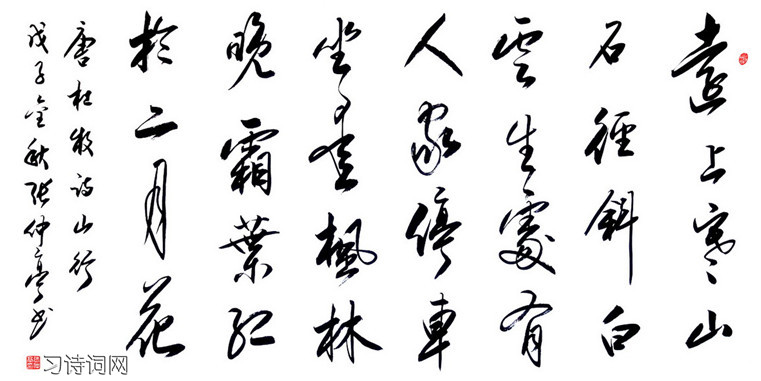 遠上寒山
石徑斜白
雲生處有
人家停車
坐愛楓林
晚霜葉紅
於二月花
唐杜牧詩山行
戊子金秋張仲亭書
习诗词网